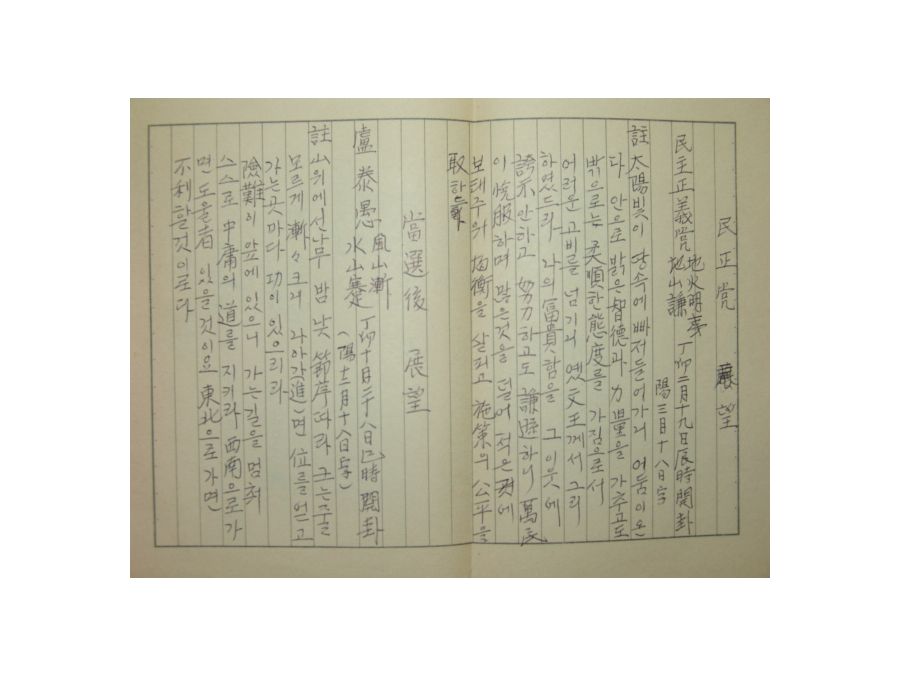 民正党 展望
民主正義党 地火明夷
地山謙 丁卯二月十九日辰時開卦
陽三月十八日字
註 太陽빛이 땅속에 빠저들어가니 어둠이 온
다 안으로 밝은 智德과 力量을 가추고도
밖으로는 柔順한 態度를 가짐으로서
어려운 고비를 넘기니 옛 文王께서 그리
하였드라 나의 富貴함을 그 이웃에
誇示 안하고 努力하고도 謙遜하니 萬民
이 悅服하며 많은것을 덜어 적은 곳에
보태주워 均衡을 살피고 施策의 公平을
取하는
當選後 展望
盧泰愚 風山漸
水山蹇 丁卯十月二十八日巳時開卦
(陽十二月十八日字)
註 山위에 선 나무 밤낮 節序따라 크는줄
모르게 漸々 크니 나아간(進)면 位를 얻고
가는곳마다 功이 있으리라
險難이 앞에 있으니 가는길을 멈춰
스스로 中庸의 道를 지키라 西南으로가
면 도울者 있을것이요 東北으로가면
不利할것이로다